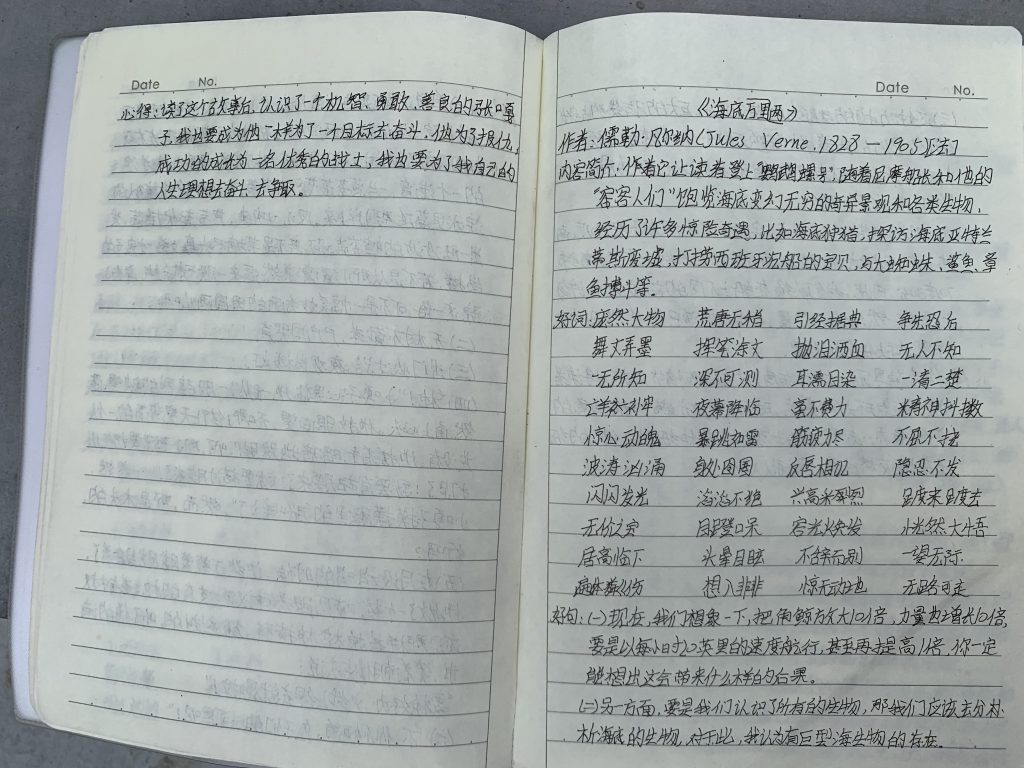 Date No.
心得：读了这个故事后，认识了一个机智、勇敢、善良的张口
子，我也要成为他一样为了一个目标去奋斗，他为了
成功的成为一名优秀的，我也要为了我自己的
人生理想去奋斗、去争取。
Date No.
《海底万里两》
作者：儒勒·凡尔纳(Jules Verne, 1828—1905)法
内容简介：作者它让读者登上"鹦鹉螺号"，随着尼摩船长和他的
"客人们"饱览海底变幻无穷的奇异景观和各类生物，
经历了许多惊险奇遇，比如海底狩猎，探访海底亚特兰
蒂斯废墟，打捞西班牙沉船的宝贝，与大蜘蛛、鲨鱼、章
鱼搏斗等。
好词：庞然大物 荒唐无稽 引经据典 争先恐后
舞文弄墨 挥笔 抛泪洒血 无人不知
一无所知 深不可测 耳濡目染 一清二楚
亡羊补牢 夜幕降临 毫不费力 精神抖擞
惊心动魄 暴跳如雷 筋疲力尽 不屈不挠
波涛汹涌 反唇相讥 隐忍不发
闪闪发光 滔滔不绝 兴高采烈 踱来踱去
无价之宝 目瞪口呆 容光焕发 恍然大悟
居高临下 头晕目眩 不辞而别 一望无际
遍体鳞伤 想入非非 惊天动地 无路可走
好句：(一)现在，我们想象一下，把角鲸放大10倍，力量也增长10倍，
要是以每小时20英里的速度航行，甚至再提高1倍，你一定
能想出这会带来什么样的后果。
(二)另一方面，要是我们认识了所有的生物，那我们应该去
海底的生物，对于此，我认为有巨型海生物的存在。